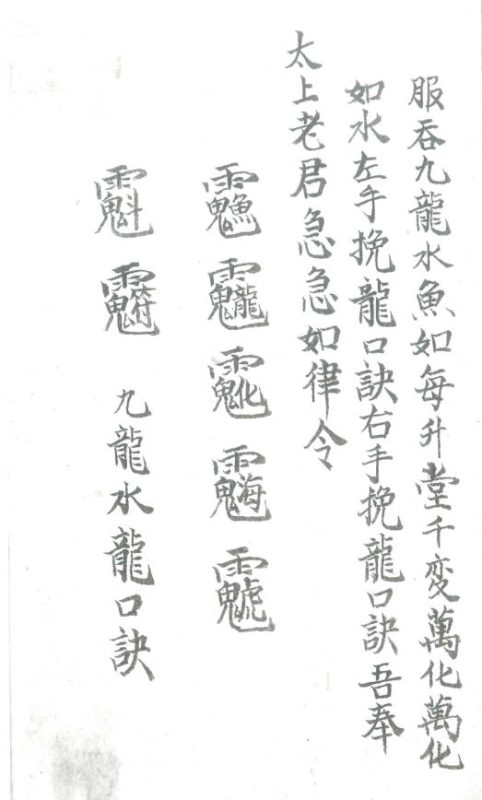 服吞九龍水魚如每升堂千変萬化萬化
如水左手挽龍口訣右手挽龍口訣吾奉
太上老君急急如律令
九龍水龍口訣